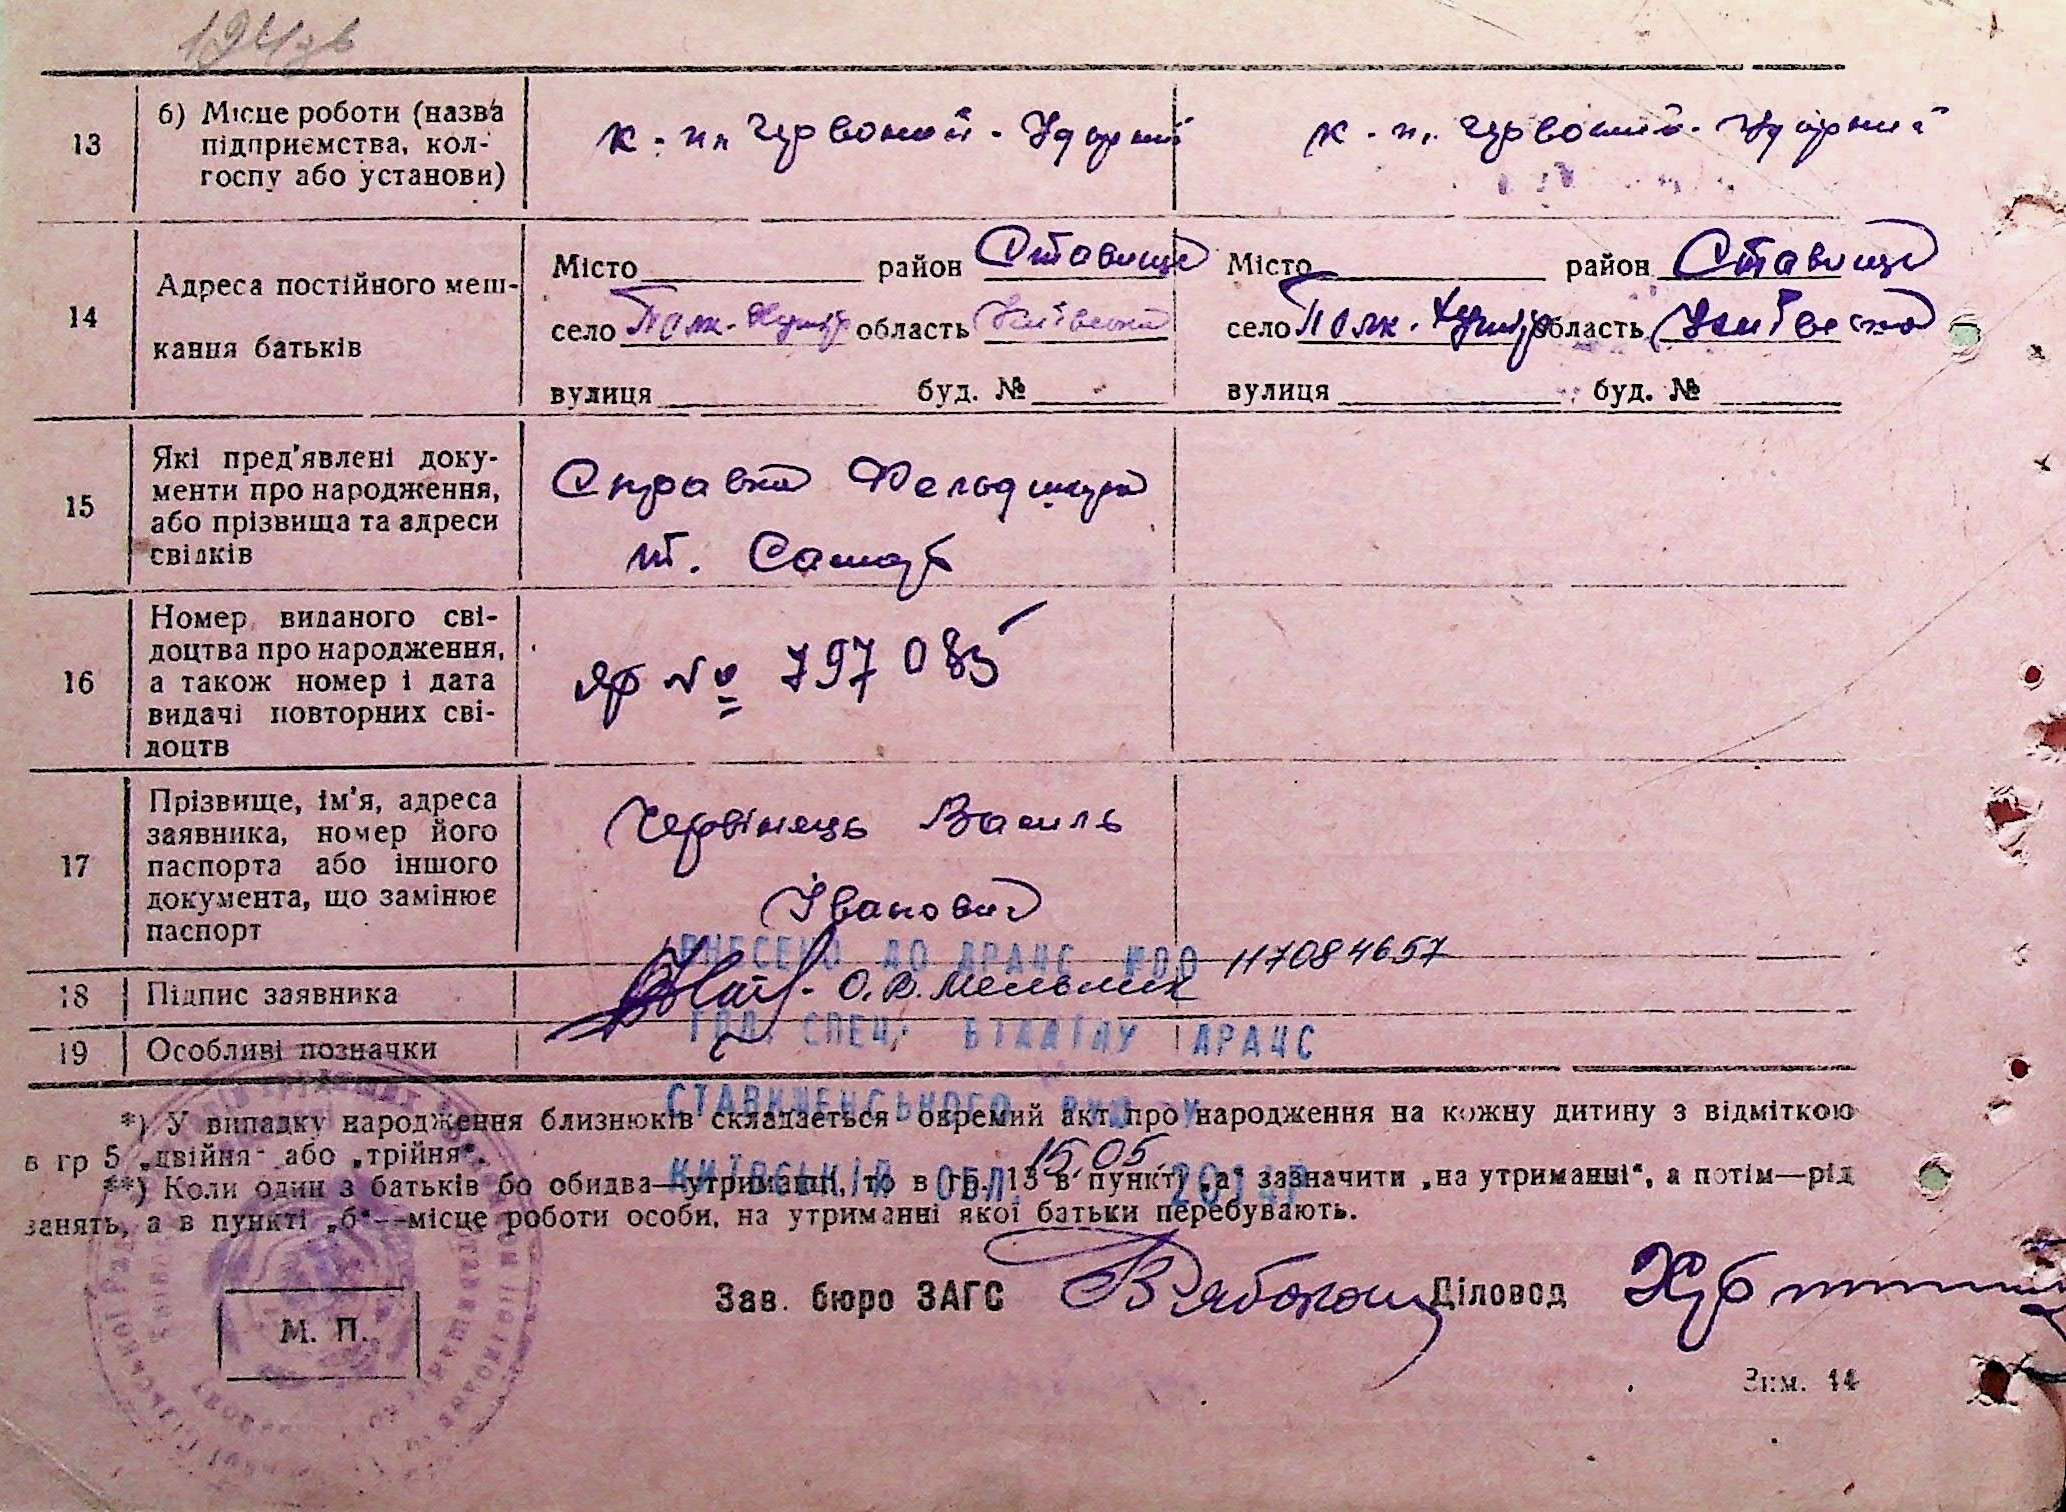 13
б) Місце роботи (назва
підприємства, кол-
госпу або установи)
к-п Червоний-Ударний
к-п. Червоний-Ударний
14
Адреса постійного меш-
кання батьків
Місто район Ставище
село Полк.-Хутір область Київська
вулиця буд. №
Місто район Ставище
село Полк.-Хутір область Київська
вулиця буд. №
15
Які пред'явлені доку-
менти про народження,
або прізвища та адреси
свідків
Справка Фельдшера
т.
16
Номер виданого сві-
доцтва про народження,
а також номер і дата
видачі повторних сві-
доцтв
яр № 797085
17
Прізвище, ім'я, адреса
заявника, номер його
паспорта або іншого
документа, що замінює
паспорт
Червінець Василь
Іванович
ВНЕСЕНО ДО ДРАЦС №00 117084657
18
Підпис заявника
О.В. Мельник
ГОЛ. СПЕЦ. ВІДДІЛУ ДРАЦС
19
Особливі позначки
СТАВИЩЕНСЬКОГО РУЮ У
*) У випадку народження близнюків складається окремий акт про народження на кожну дитину з відміткою
в гр 5 „двійня" або „трійня".
КИЇВСЬКІЙ ОБЛ. 15.05. 2014Р
**) Коли один з батьків бо обидва—утриманці, то в гр. 13 в пункті „а" зазначити „на утриманні", а потім—рід
занять, а в пункті „б"—місце роботи особи, на утриманні якої батьки перебувають.
Зав. бюро ЗАГС Рябокон Діловод
М. П.
Зим. 14